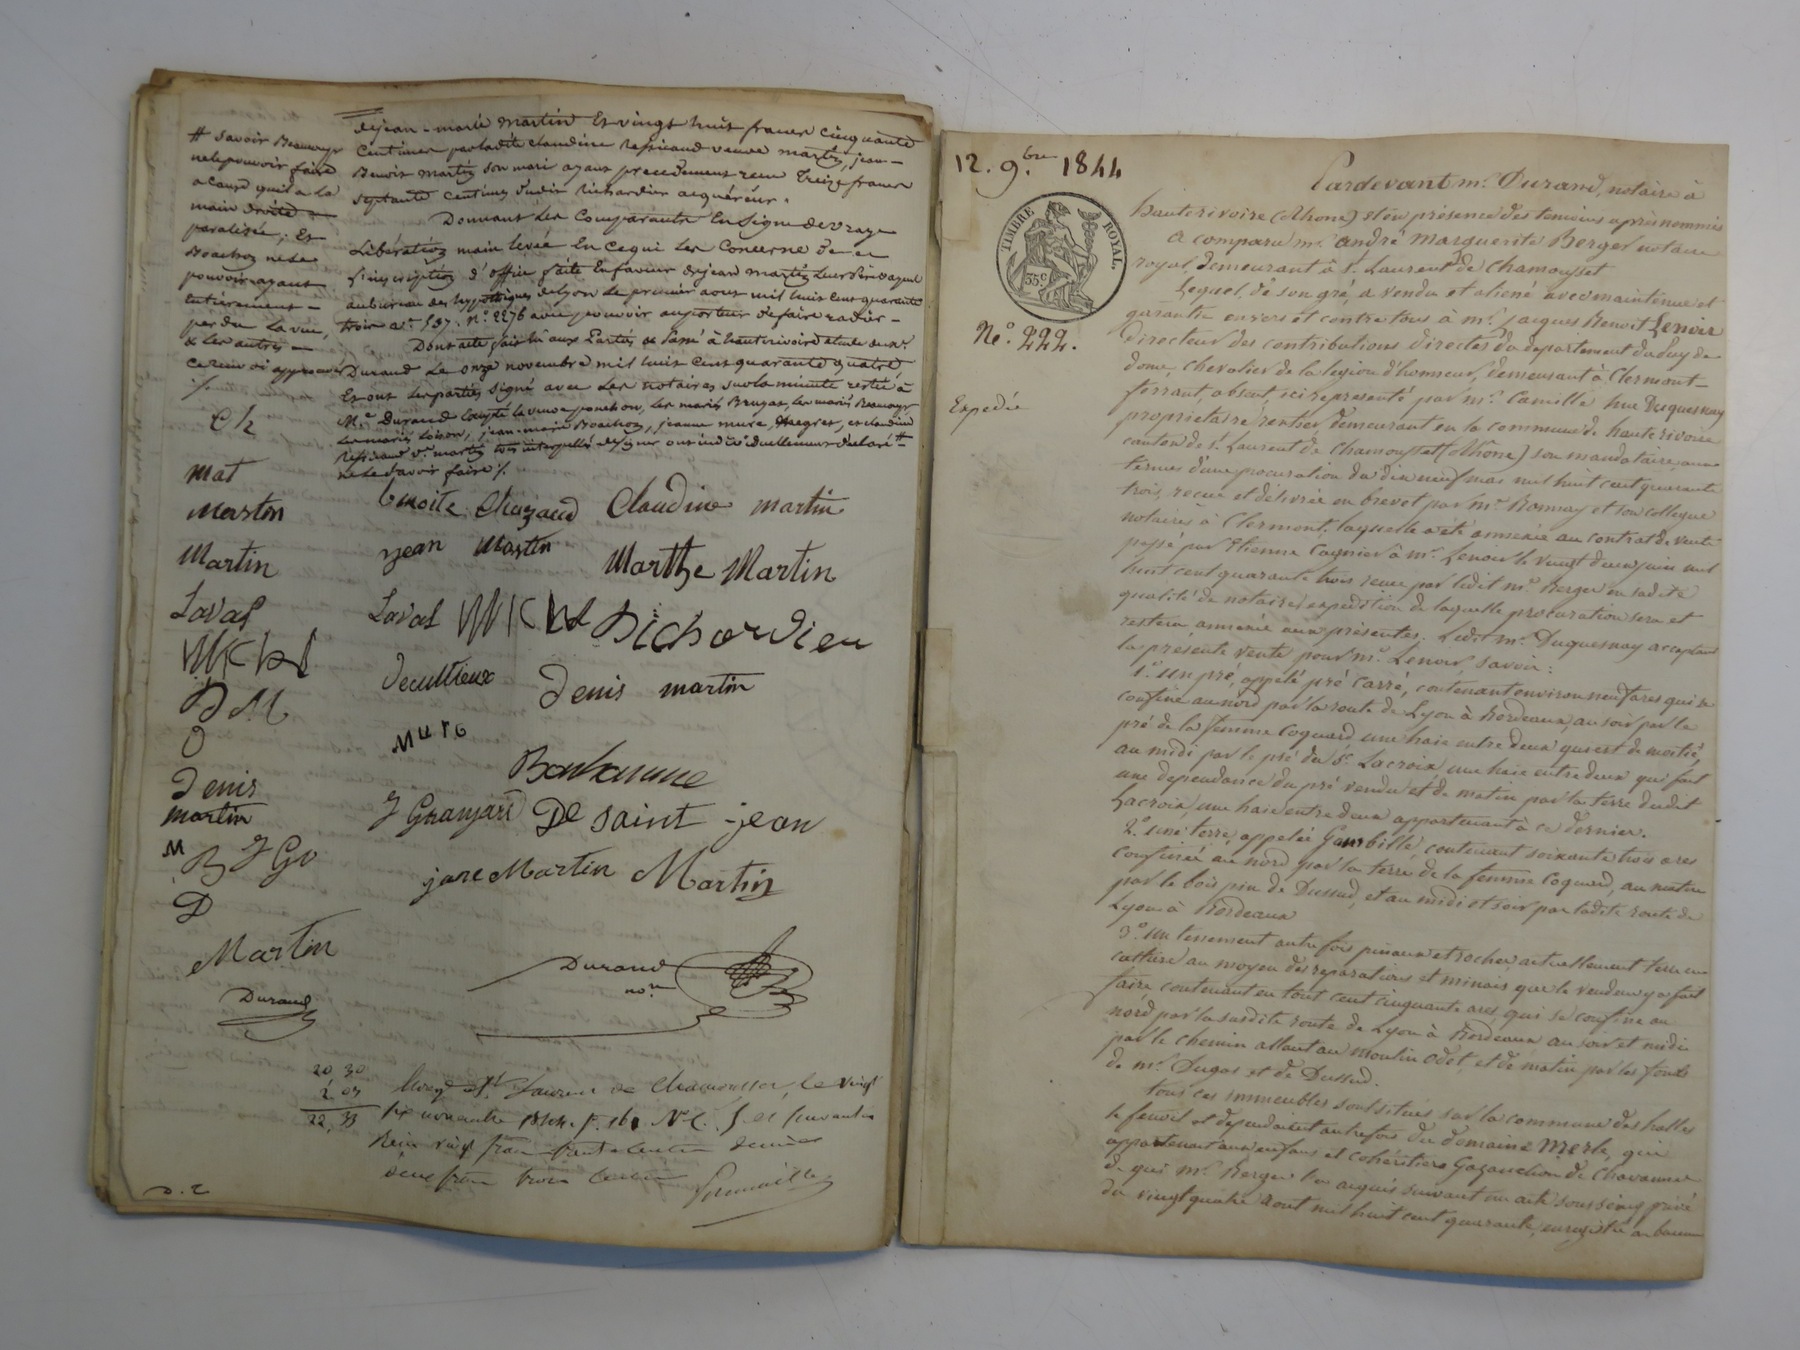 dejean-marie martin Et vingt huit francs cinquante
centimes par ladite claudine Refricaud veuve martin, jean-
Benoit martin son mari ayant precedemment recu Treize francs
septante centimes dudit Richardier acquéreur.
Donnant les Comparants En signe de vraye
Libération main levée En ce qui les Concerne de
L'inscription d'office faite En faveur dejean martin
au bureau des hypothèques de Lyon Le premier aout mil huit cent quarante
trois vol. 537. N.° 2276 avec pouvoir au porteur de faire radier-
Dont acte fait lu aux Parties & Passé à hauterivoire étude de M.e
Durand Le onze novembre mil huit Cent quarante quatre
Et ont les parties signé avec les notaires sur la minute restée à
M.e Durand Excepté la veuve ponchon, les mariés Bruyas, les mariés Beaumays
Les mariés Loison, jean-marie Boachon, jeanne mure, et claudine
Refricaud v.e martin de signer ont individuellement déclaré #
ne le savoir faire ./.
# savoir Beaumays
ne le pouvoir faire
a cause qu'il a la
main droite
paralisée, Et
Boachon ne le
pouvoir ayant
entierement -
perdu la vue,
& les autres -
ce renvoi approuvé
./.
mat
Martin
Benoite Chazaud Claudine martin
Martin
jean Martin
Marthe Martin
Laval
Laval
Richardier
D M
Decultieux
Denis martin
O
Muro
Denis
martin
Bonhomme
J Granjard De saint-jean
M
B J Gr
D
jane Martin Martin
Martin
Durand
Durand
no.re
20 30
2 03
22,33
Enreg. à St. Laurent de Chamousset, le vingt
six novembre 1844. f. 161 V.° C. 5 et suivantes
Reçu vingt francs trente centimes decime
deux francs trois centimes
D. 2
12. 9.bre 1844
TIMBRE ROYAL.
35.c
N.° 222.
Expédié
Pardevant m.e Durand, notaire à
hauterivoire (Rhone) et en présence des temoins après nommés
A comparu m.r andré Marguerite Berger notaire
royal, demeurant à S.t Laurent de Chamousset
Lequel, de son gré, a vendu et aliené avec maintenue et
garantie envers et contre tous à m.r jacques Benoit Lenoir
directeur des contributions directes du departement du Puy de
dome, chevalier de la legion d'honneur, demeurant à Clermont-
ferrant, absent, ici representé par m.r Camille hue Duquesnay
propriétaire rentier demeurant en la commune de hauterivoire
canton de S.t Laurent de Chamousset (Rhone) son mandataire, aux
termes d'une procuration du dix neuf mai mil huit cent quarante
trois, recue et délivrée en brevet par m.e Bonnay et son collegue
notaires à Clermont, laquelle a été annexée au contrat de vente
passé par Etienne Cognier à m.r Lenoir le vingt deux juin mil
huit cent quarante trois recu par ledit m.e Berger en sadite
qualité de notaire, expédition de laquelle procuration sera et
restera annexée aux présentes. Ledit m.r Duquesnay acceptant
la présente vente pour m.r Lenoir, savoir:
1.° Un pré, appelé pré Carré, contenant environ neuf ares qui se
confine au nord par la route de Lyon à Bordeaux, au soir par le
pré de la femme Coquard une haie entre deux qui est de moitié,
au midi par le pré du S.r Lacroix une haie entre deux qui fait
une dependance du pré vendu et de matin par la terre dudit
Lacroix une haie entre deux appartenant à ce dernier.
2.° une terre appelée Gambille, contenant soixante trois ares
confinée au nord par la terre de la femme Coquard, au matin
par le bois pin de Dussud, et au midi et soir par ladite route de
Lyon à Bordeaux
3.° un tenement autrefois pinaux et rocher actuellement terre en
culture au moyen des reparations et minais que le vendeur y a fait
faire contenant en tout cent cinquante ares qui se confine au
nord par la susdite route de Lyon à Bordeaux au soir et midi
par le chemin allant au moulin Odet, et de matin par les fonds
de m.r Dugas et de Dussud.
tous ces immeubles sont situés sur la commune des halles
le fenoil et dependaient autrefois du domaine Merle, qui
appartenait aux enfans et cohéritiers Gazanchon de Chavannes
de qui m.r Berger l'a acquis suivant un acte sous seing privé
du vingt quatre aout mil huit cent quarante, enregistré au bureau